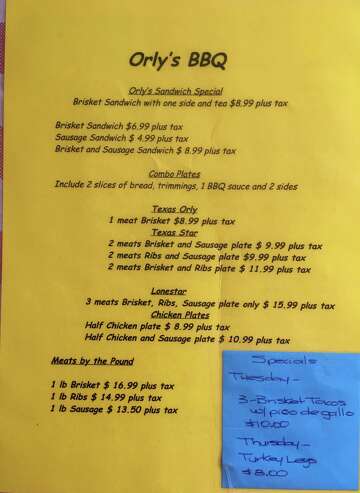 Orly's BBQ
Orly's Sandwich Special
Brisket Sandwich with one side and tea $8.99 plus tax
Brisket Sandwich $6.99 plus tax
Sausage Sandwich $ 4.99 plus tax
Brisket and Sausage Sandwich $ 8.99 plus tax
Combo Plates
Include 2 slices of bread, trimmings, 1 BBQ sauce and 2 sides
Texas Orly
1 meat Brisket $8.99 plus tax
Texas Star
2 meats Brisket and Sausage plate $ 9.99 plus tax
2 meats Ribs and Sausage plate $9.99 plus tax
2 meats Brisket and Ribs plate $ 11.99 plus tax
Lonestar
3 meats Brisket, Ribs, Sausage plate only $ 15.99 plus tax
Chicken Plates
Half Chicken plate $ 8.99 plus tax
Half Chicken and Sausage plate $ 10.99 plus tax
Meats by the Pound
1 lb Brisket $ 16.99 plus tax
1 lb Ribs $ 14.99 plus tax
1 lb Sausage $ 13.50 plus tax
Specials
Tuesday-
3-Brisket Tacos
w/ pico de gallo
$10.00
Thursday-
Turkey Legs
$8.00